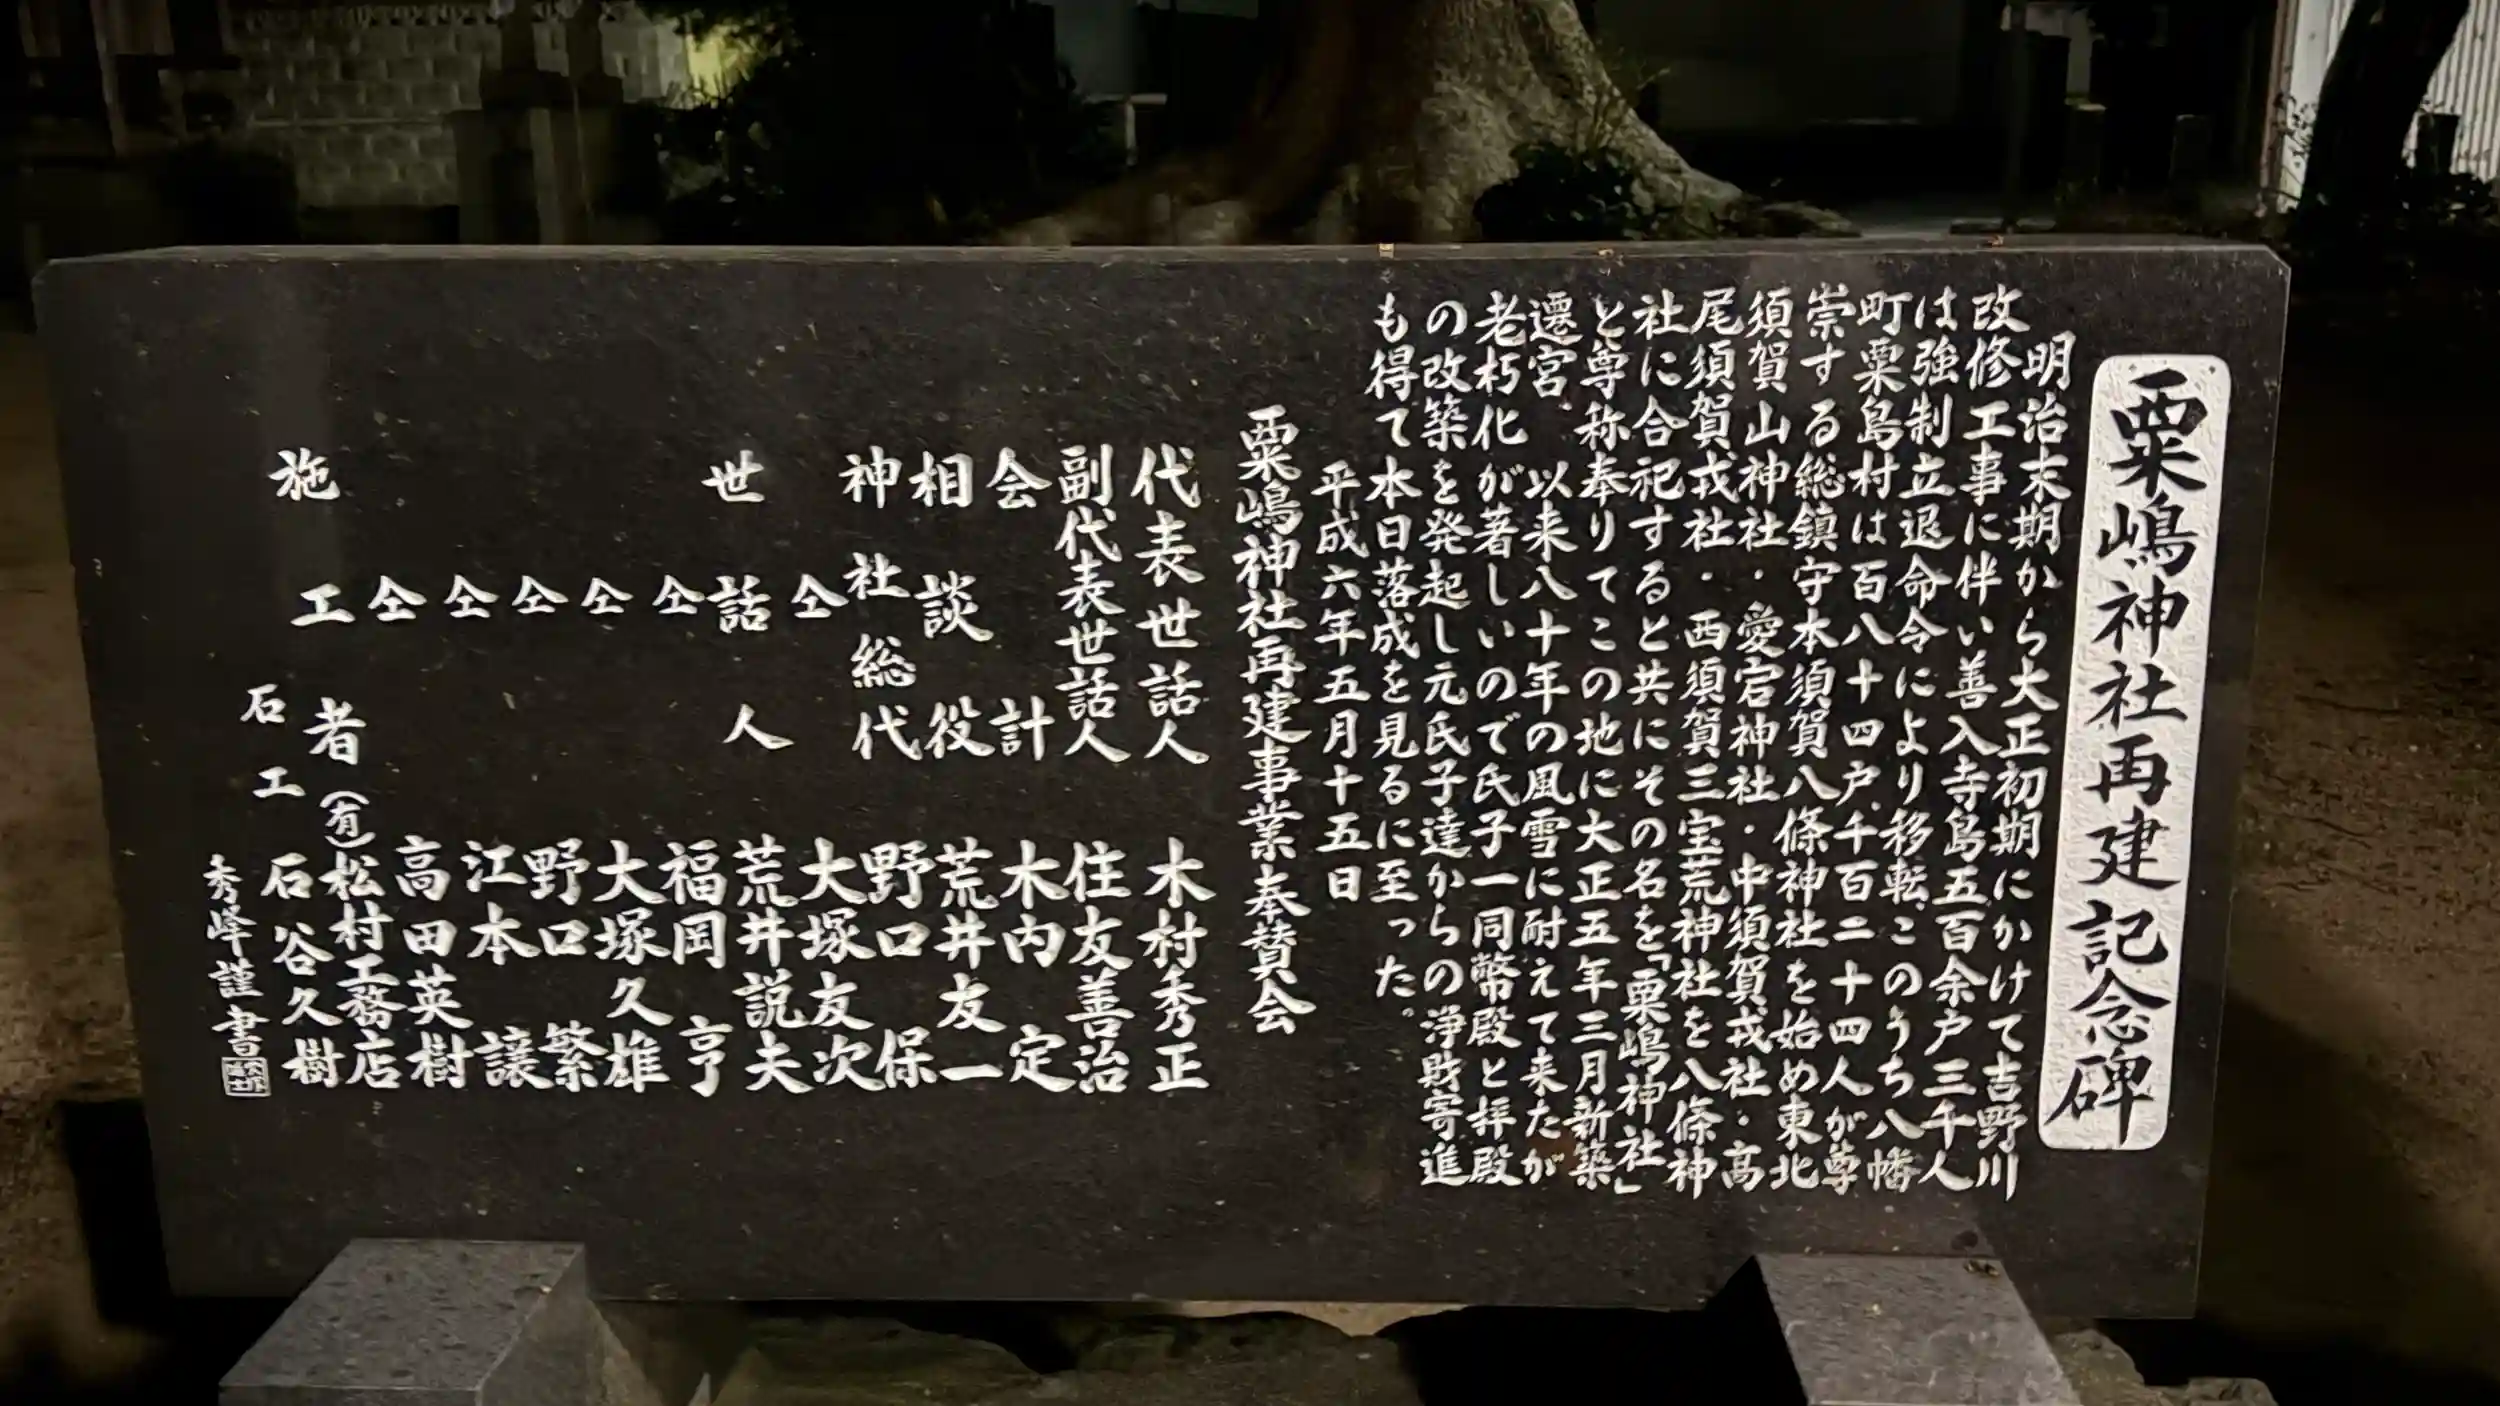 粟嶋神社再建記念碑
明治末期から大正初期にかけて吉野川
改修工事に伴い善入寺島五百余戸三千人
は強制立退命令により移転、このうち八幡
町粟島村は百八十四戸、千百二十四人が尊
崇する総鎮守本須賀八條神社を始め東北
須賀山神社・愛宕神社・中須賀戎社・高
尾須賀戎社・西須賀三宝荒神社を八條神
社に合祀すると共にその名を「粟嶋神社」
と尊称奉りてこの地に大正五年三月新築
遷宮、以来八十年の風雪に耐えて来たが
老朽化が著しいので氏子一同幣殿と拝殿
の改築を発起し元氏子達からの浄財寄進
も得て本日落成を見るに至った。
平成六年五月十五日
粟嶋神社再建事業奉賛会
代表世話人 木村秀正
副代表世話人 住友善治
会計 木内定
相談役 荒井友一
神社総代 野口保
仝 大塚友次
世話人 荒井説夫
仝 福岡亨
仝 大塚久雄
仝 野口繁
仝 江本譲
仝 高田英樹
施工者 (有)松村工務店
石工 石谷久樹
秀峰謹書